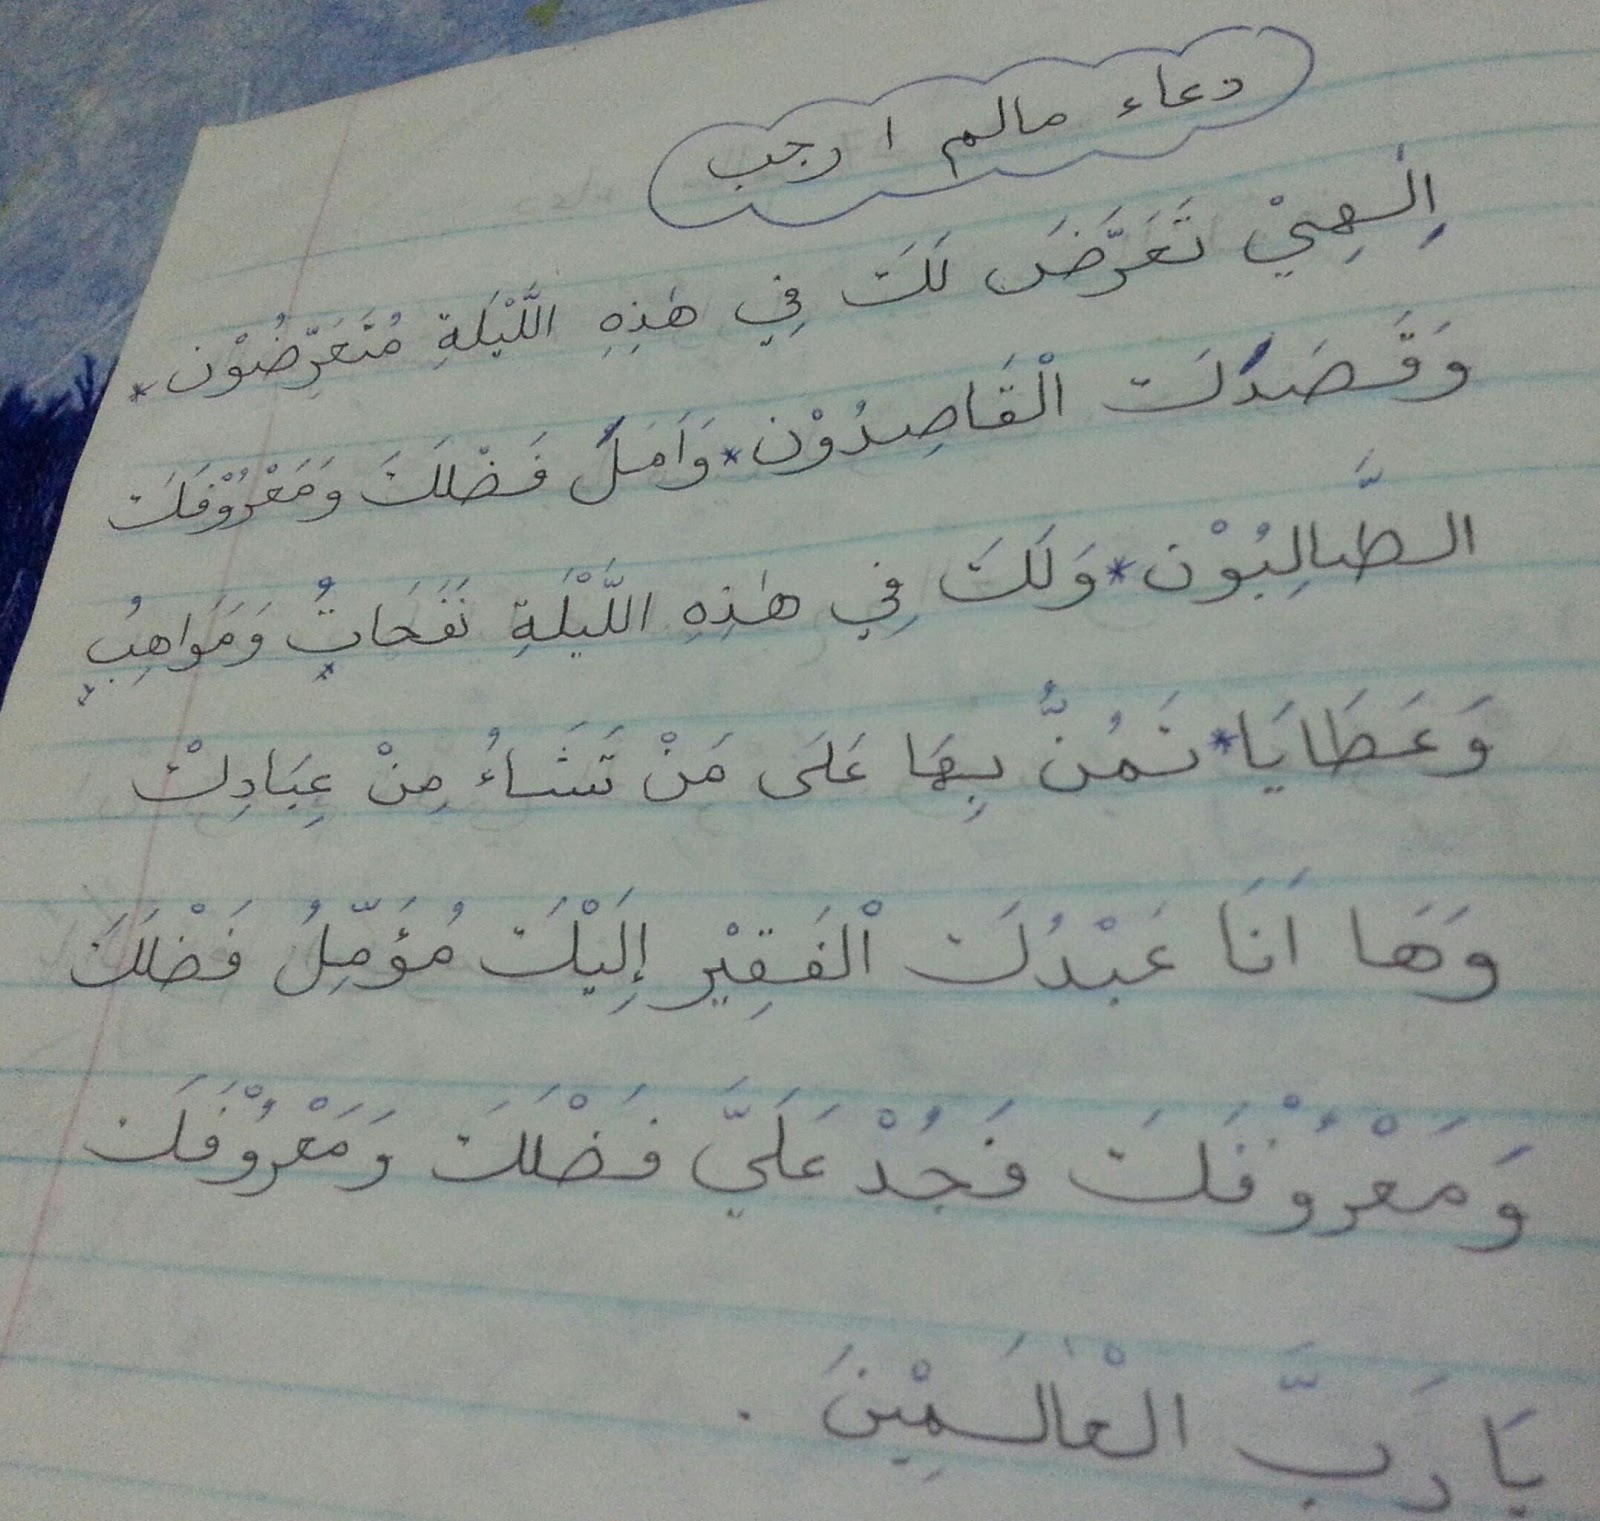 دعاء مالم ١ رجب
اِلٰهِيْ تَعَرَّضَ لَكَ فِي هٰذِهِ اللَّيْلَةِ مُتَعَرِّضُوْن *
وَقَصَدَكَ الْقَاصِدُوْن * وَاَمَلَ فَضْلَكَ وَمَعْرُوْفَكَ
الطَّالِبُوْن * وَلَكَ فِي هٰذِهِ اللَّيْلَةِ نَفَحَاتٌ وَمَوَاهِبُ
وَعَطَايَا * تَمُنُّ بِهَا عَلَى مَنْ تَشَاءُ مِنْ عِبَادِكْ
وَهَا اَنَا عَبْدُكَ الْفَقِيْر إِلَيْكَ مُؤَمِّلُ فَضْلَكَ
وَمَعْرُوْفَكَ فَجُدْ عَلَيَّ فَضْلَكَ وَمَعْرُوْفَكَ
يَا رَبَّ الْعٰالَمِيْنَ .